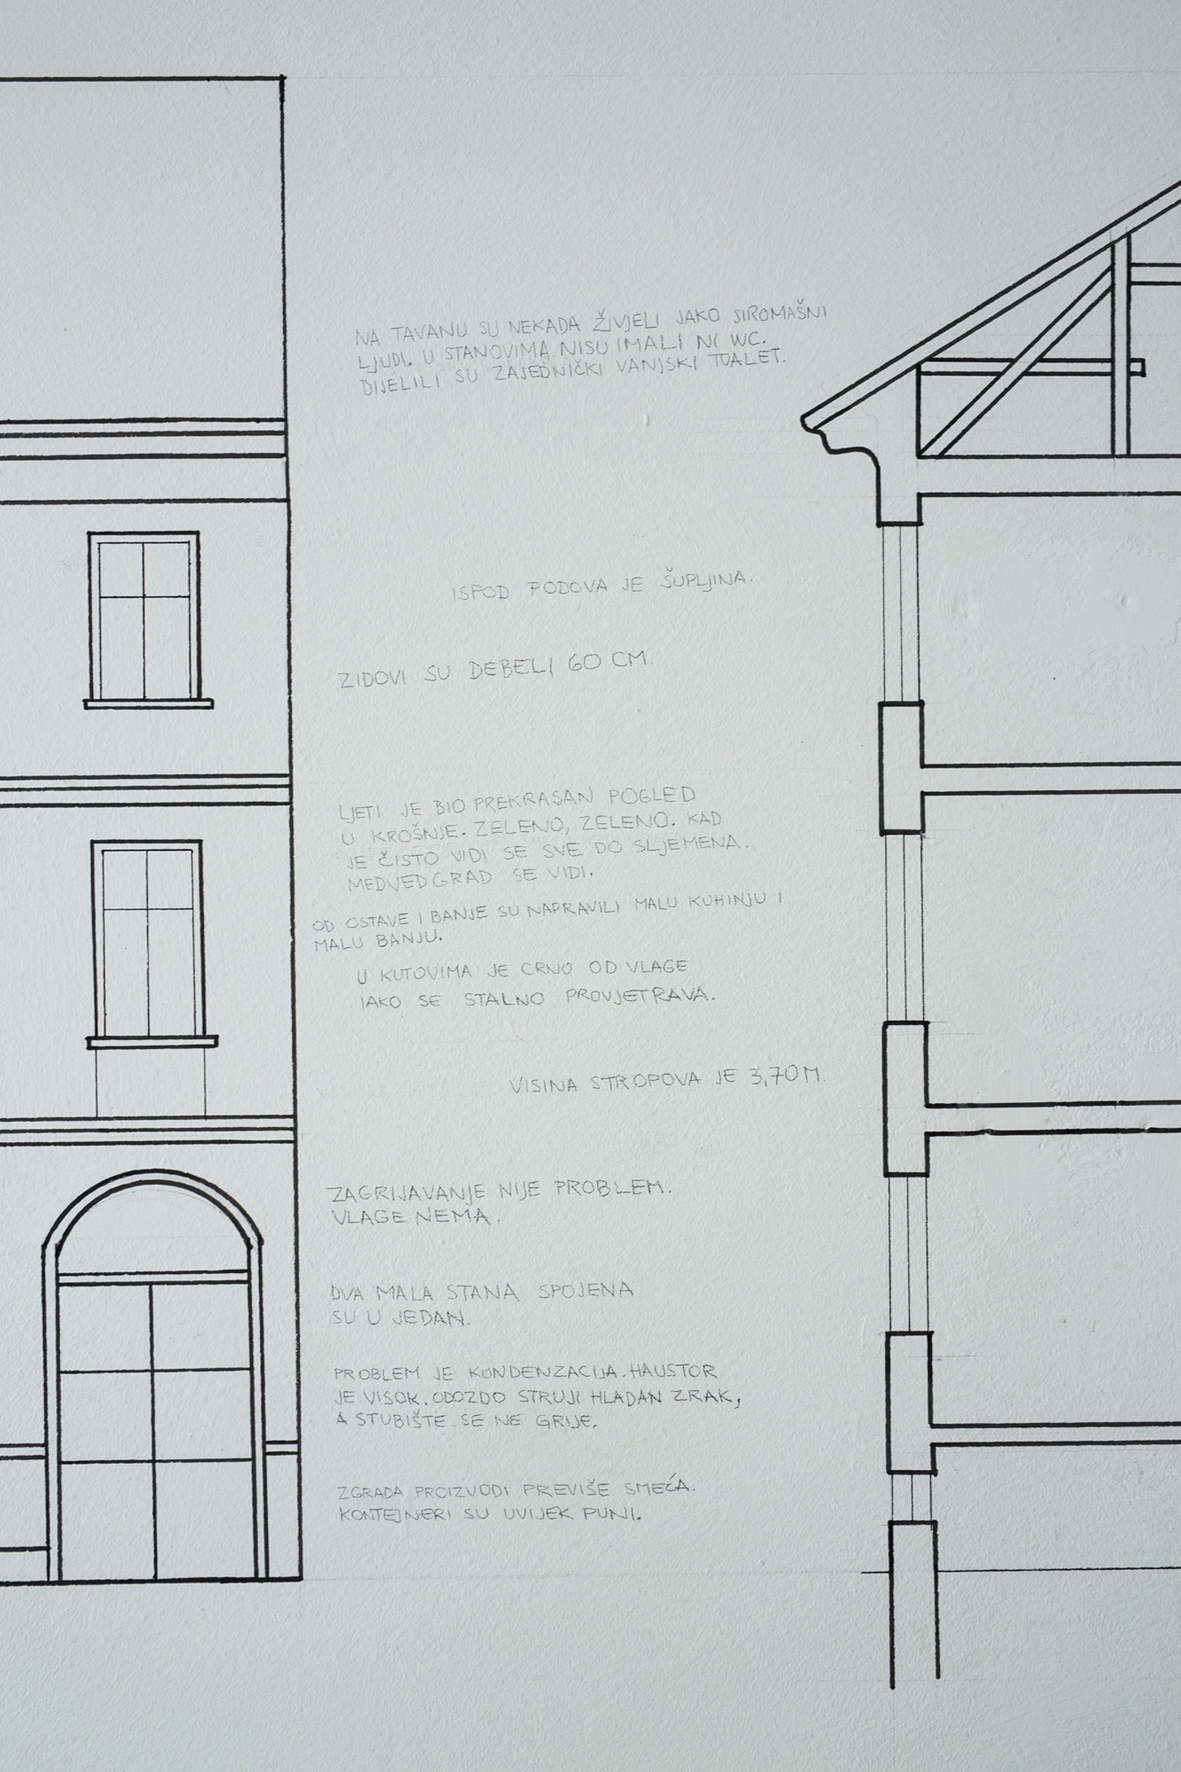 NA TAVANU SU NEKADA ŽIVJELI JAKO SIROMAŠNI
LJUDI. U STANOVIMA NISU IMALI NI WC.
DIJELILI SU ZAJEDNIČKI VANJSKI TOALET.
ISPOD PODOVA JE ŠUPLJINA.
ZIDOVI SU DEBELI 60 CM.
LJETI JE BIO PREKRASAN POGLED
U KROŠNJE. ZELENO, ZELENO. KAD
JE ČISTO VIDI SE SVE DO SLJEMENA.
MEDVEDGRAD SE VIDI.
OD OSTAVE I BANJE SU NAPRAVILI MALU KUHINJU I
MALU BANJU.
U KUTOVIMA JE CRNO OD VLAGE
IAKO SE STALNO PROVJETRAVA.
VISINA STROPOVA JE 3,70 M.
ZAGRIJAVANJE NIJE PROBLEM.
VLAGE NEMA.
DVA MALA STANA SPOJENA
SU U JEDAN.
PROBLEM JE KONDENZACIJA. HAUSTOR
JE VISOK. ODOZDO STRUJI HLADAN ZRAK,
A STUBIŠTE SE NE GRIJE.
ZGRADA PROIZVODI PREVIŠE SMEĆA.
KONTEJNERI SU UVIJEK PUNI.